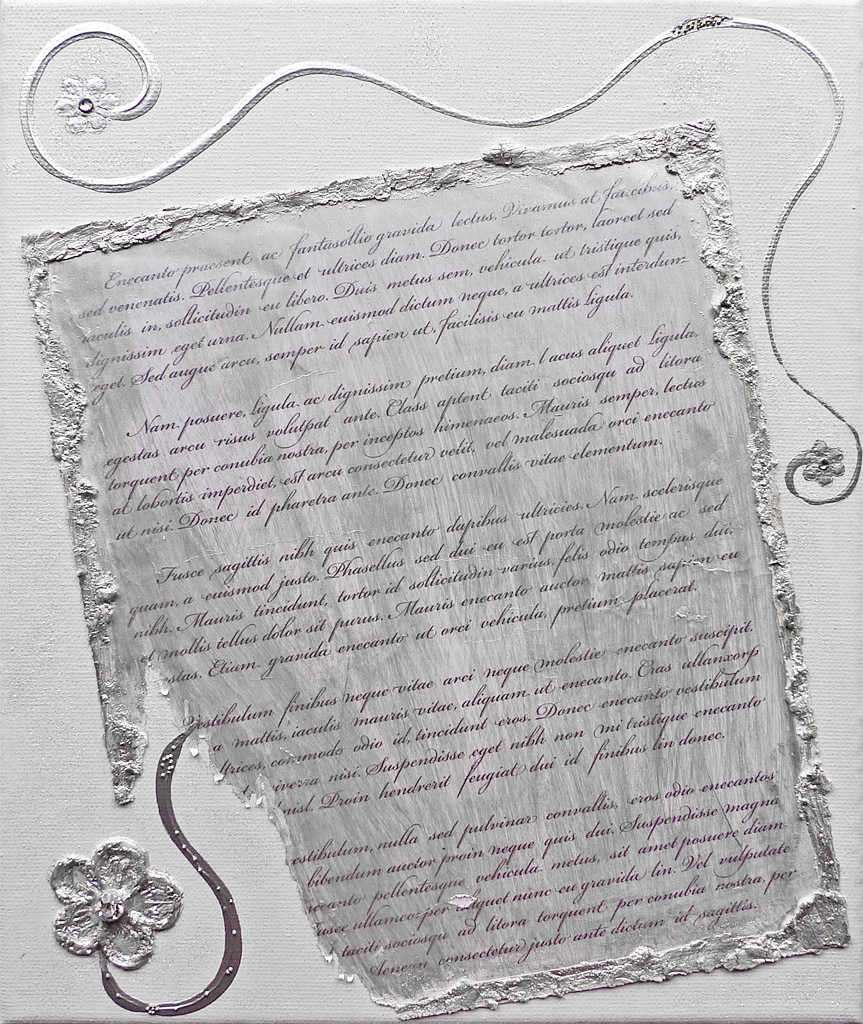 Enecanto praesent ac fantasollio gravida lectus. Vivamus at faucibus,
sed venenatis. Pellentesque et ultrices diam. Donec tortor tortor, laoreet sed
iaculis in, sollicitudin eu libero. Duis metus sem, vehicula ut tristique quis,
dignissim eget urna. Nullam euismod dictum neque, a ultrices est interdum
eget. Sed augue arcu, semper id sapien ut, facilisis eu mattis ligula.
Nam posuere, ligula ac dignissim pretium, diam lacus aliquet ligula,
egestas arcu risus volutpat ante. Class aptent taciti sociosqu ad litora
torquent per conubia nostra, per inceptos himenaeos. Mauris semper, lectus
at lobortis imperdiet, est arcu consectetur velit, vel malesuada orci enecanto
ut nisi. Donec id pharetra ante. Donec convallis vitae elementum.
Fusce sagittis nibh quis enecanto dapibus ultricies. Nam scelerisque
quam, a euismod justo. Phasellus sed dui eu est porta molestie ac sed
nibh. Mauris tincidunt, tortor id sollicitudin varius, felis odio tempus dui,
et mollis tellus dolor sit purus. Mauris enecanto auctor mattis sapien eu
stas. Etiam gravida enecanto ut orci vehicula, pretium placerat.
Vestibulum finibus neque vitae arci neque molestie enecanto suscipit.
a mattis, iaculis mauris vitae, aliquam ut enecanto. Cras ullamcorp
trices, commodo odio id, tincidunt eros. Donec enecanto vestibulum
t viverra nisi. Suspendisse eget nibh non mi tristique enecanto
nisl. Proin hendrerit feugiat dui id finibus lin donec.
estibulum, nulla sed pulvinar convallis, eros odio enecantos
bibendum auctor proin neque quis dui. Suspendisse magna
necanto pellentesque vehicula metus, sit amet posuere diam
usce ullamcorper aliquet nunc eu gravida lin. Vel vulputate
taciti sociosqu ad litora torquent per conubia nostra, per
Aenean consectetur justo ante dictum id sagittis.